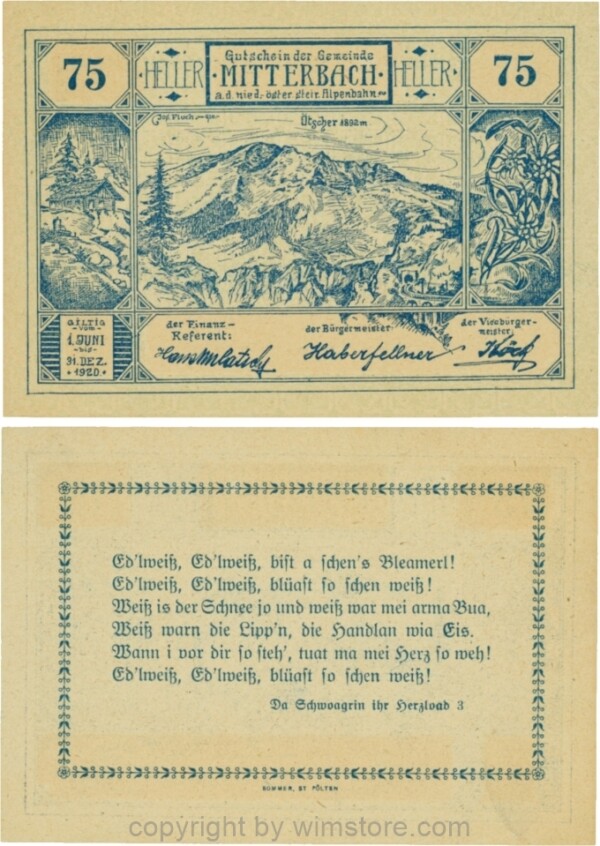 75
HELLER
Gutschein der Gemeinde
MITTERBACH
a.d. nied.-öster. steir. Alpenbahn
HELLER
75
Ötscher 1892 m
GILTIG
VOM
1. JUNI
BIS
31. DEZ.
1920.
der Finanz-
Referent:
der Bürgermeister:
Haberfellner
der Vizebürger-
meister:
Ed'lweiß, Ed'lweiß, bist a schen's Bleamerl!
Ed'lweiß, Ed'lweiß, blüast so schen weiß!
Weiß is der Schnee jo und weiß war mei arma Bua,
Weiß warn die Lipp'n, die Handlan wia Eis.
Wann i vor dir so steh', tuat ma mei Herz so weh!
Ed'lweiß, Ed'lweiß, blüast so schen weiß!
Da Schwoagrin ihr Herzload 3
SOMMER, ST. PÖLTEN
copyright by wimstore.com